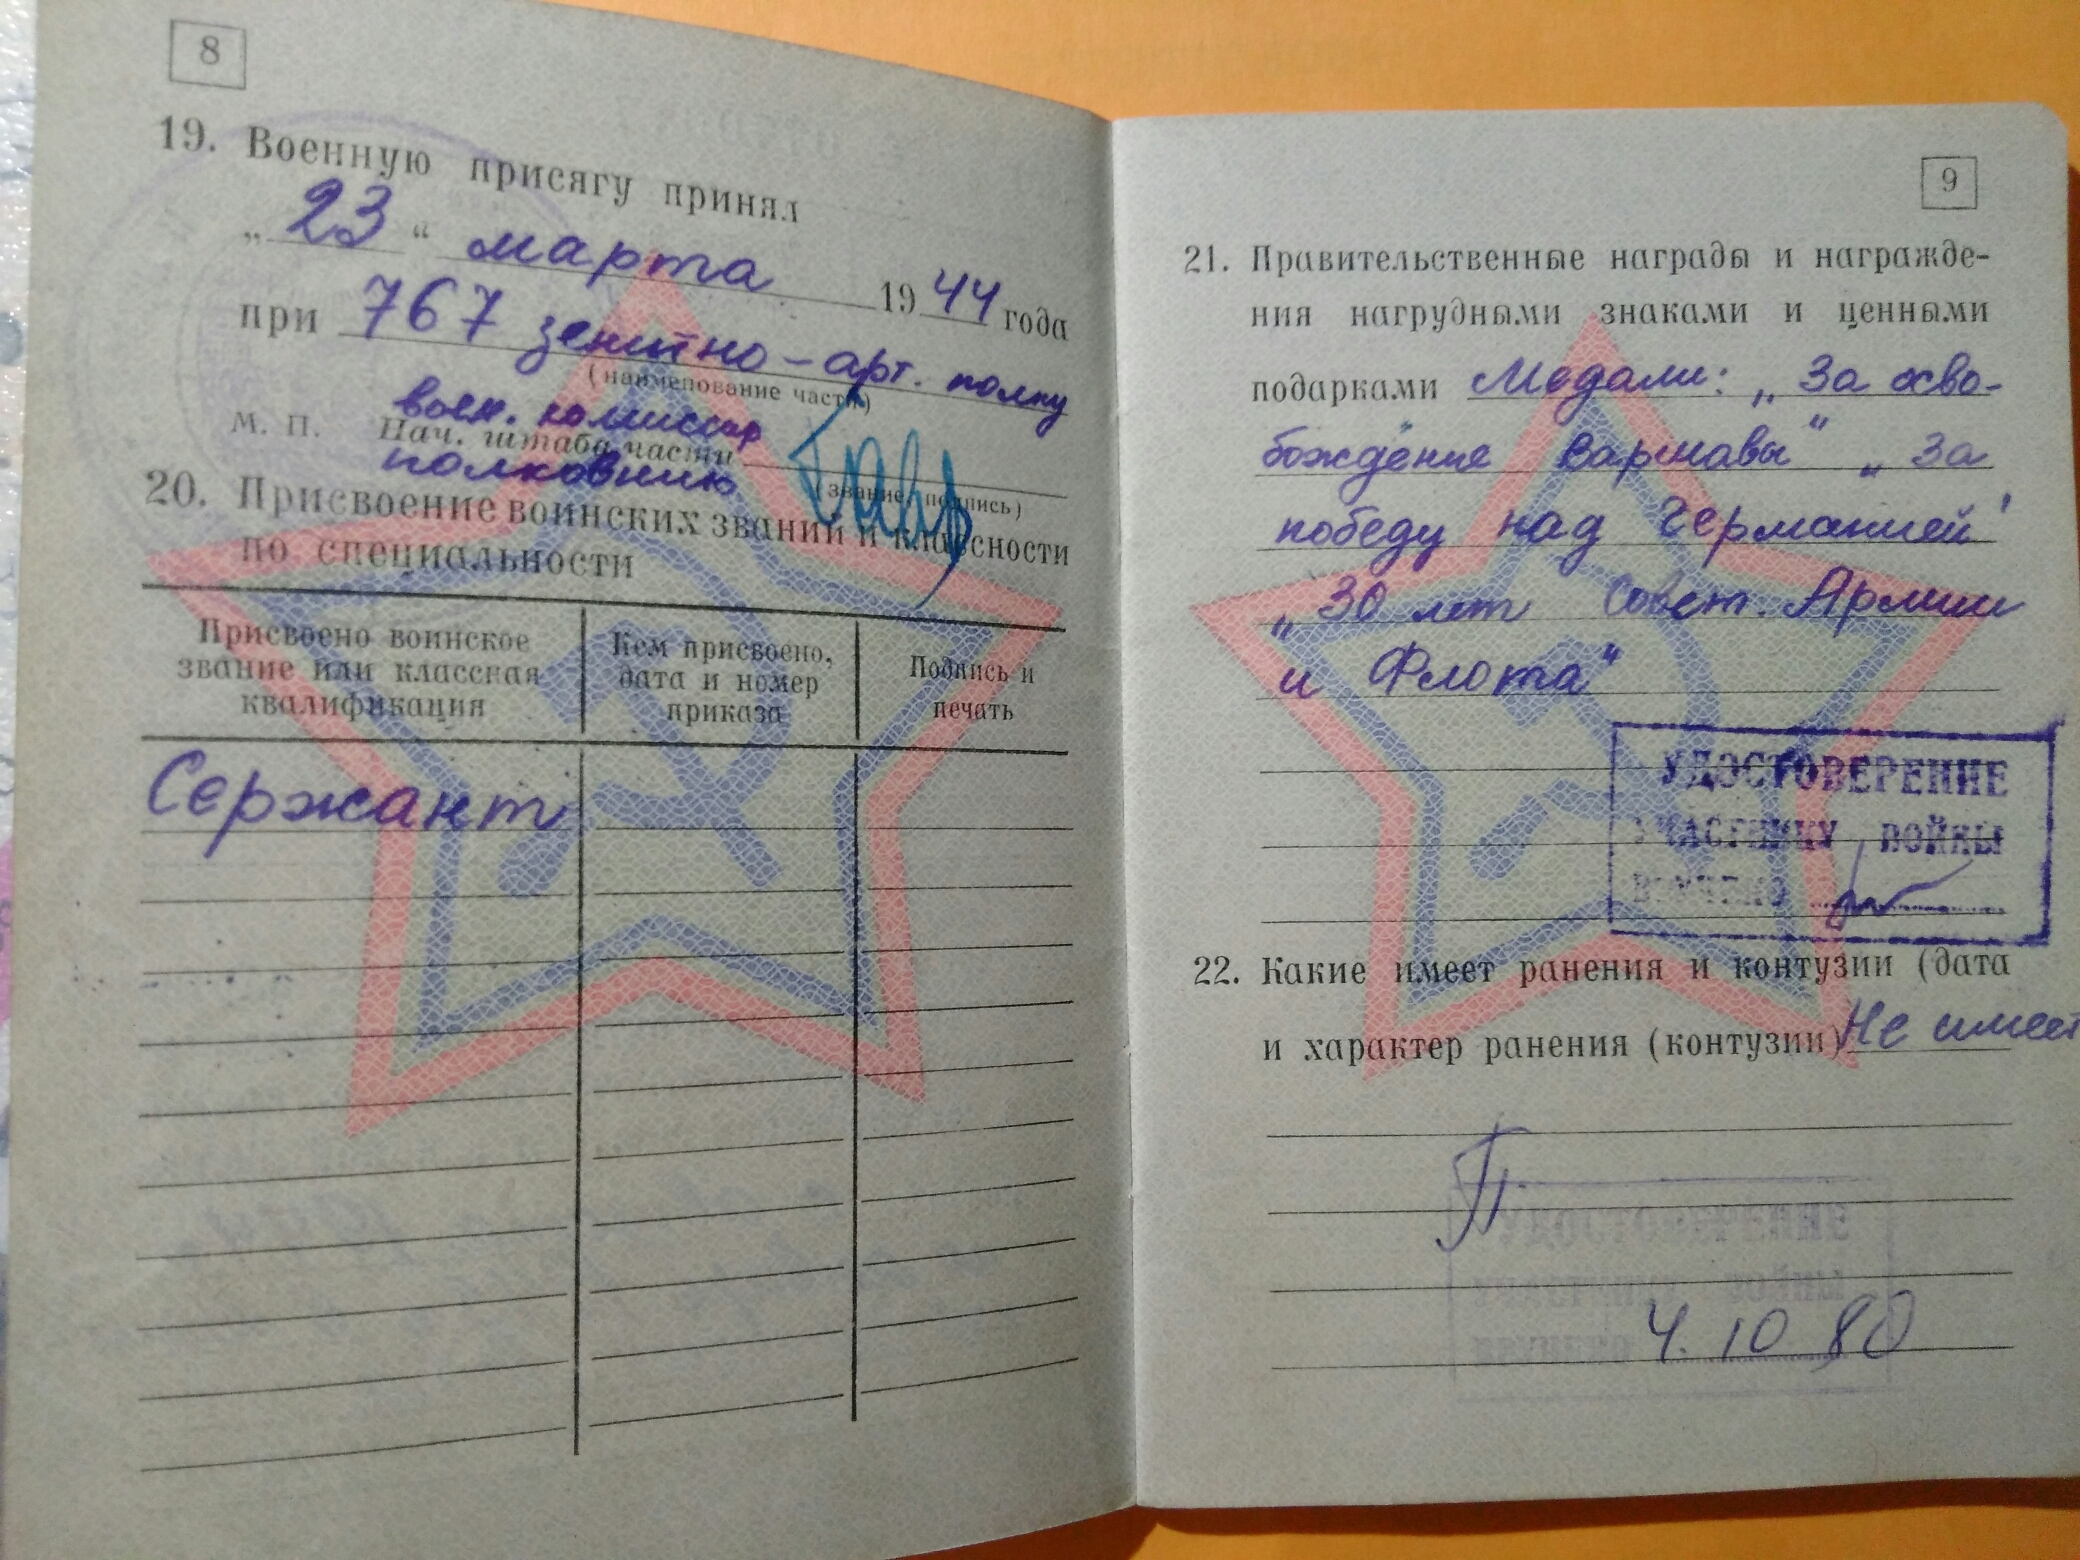 8
19. Военную присягу принял
„ 23 “ марта 1944 года
при 767 зенитно-арт. полку
(наименование части)
воен. комиссар
М. П. Нач. штаба части
полковник
(звание, подпись)
20. Присвоение воинских званий и классности
по специальности
Присвоено воинское
звание или классная
квалификация
Кем присвоено,
дата и номер
приказа
Подпись и
печать
Сержант
9
21. Правительственные награды и награжде-
ния нагрудными знаками и ценными
подарками Медали: „За осво-
бождение Варшавы" „За
победу над Германией"
„30 лет Совет. Армии
и Флота"
УДОСТОВЕРЕНИЕ
УЧАСТНИКУ ВОЙНЫ
22. Какие имеет ранения и контузии (дата
и характер ранения (контузии) Не имеет
УДОСТОВЕРЕНИЕ
4. 10 80